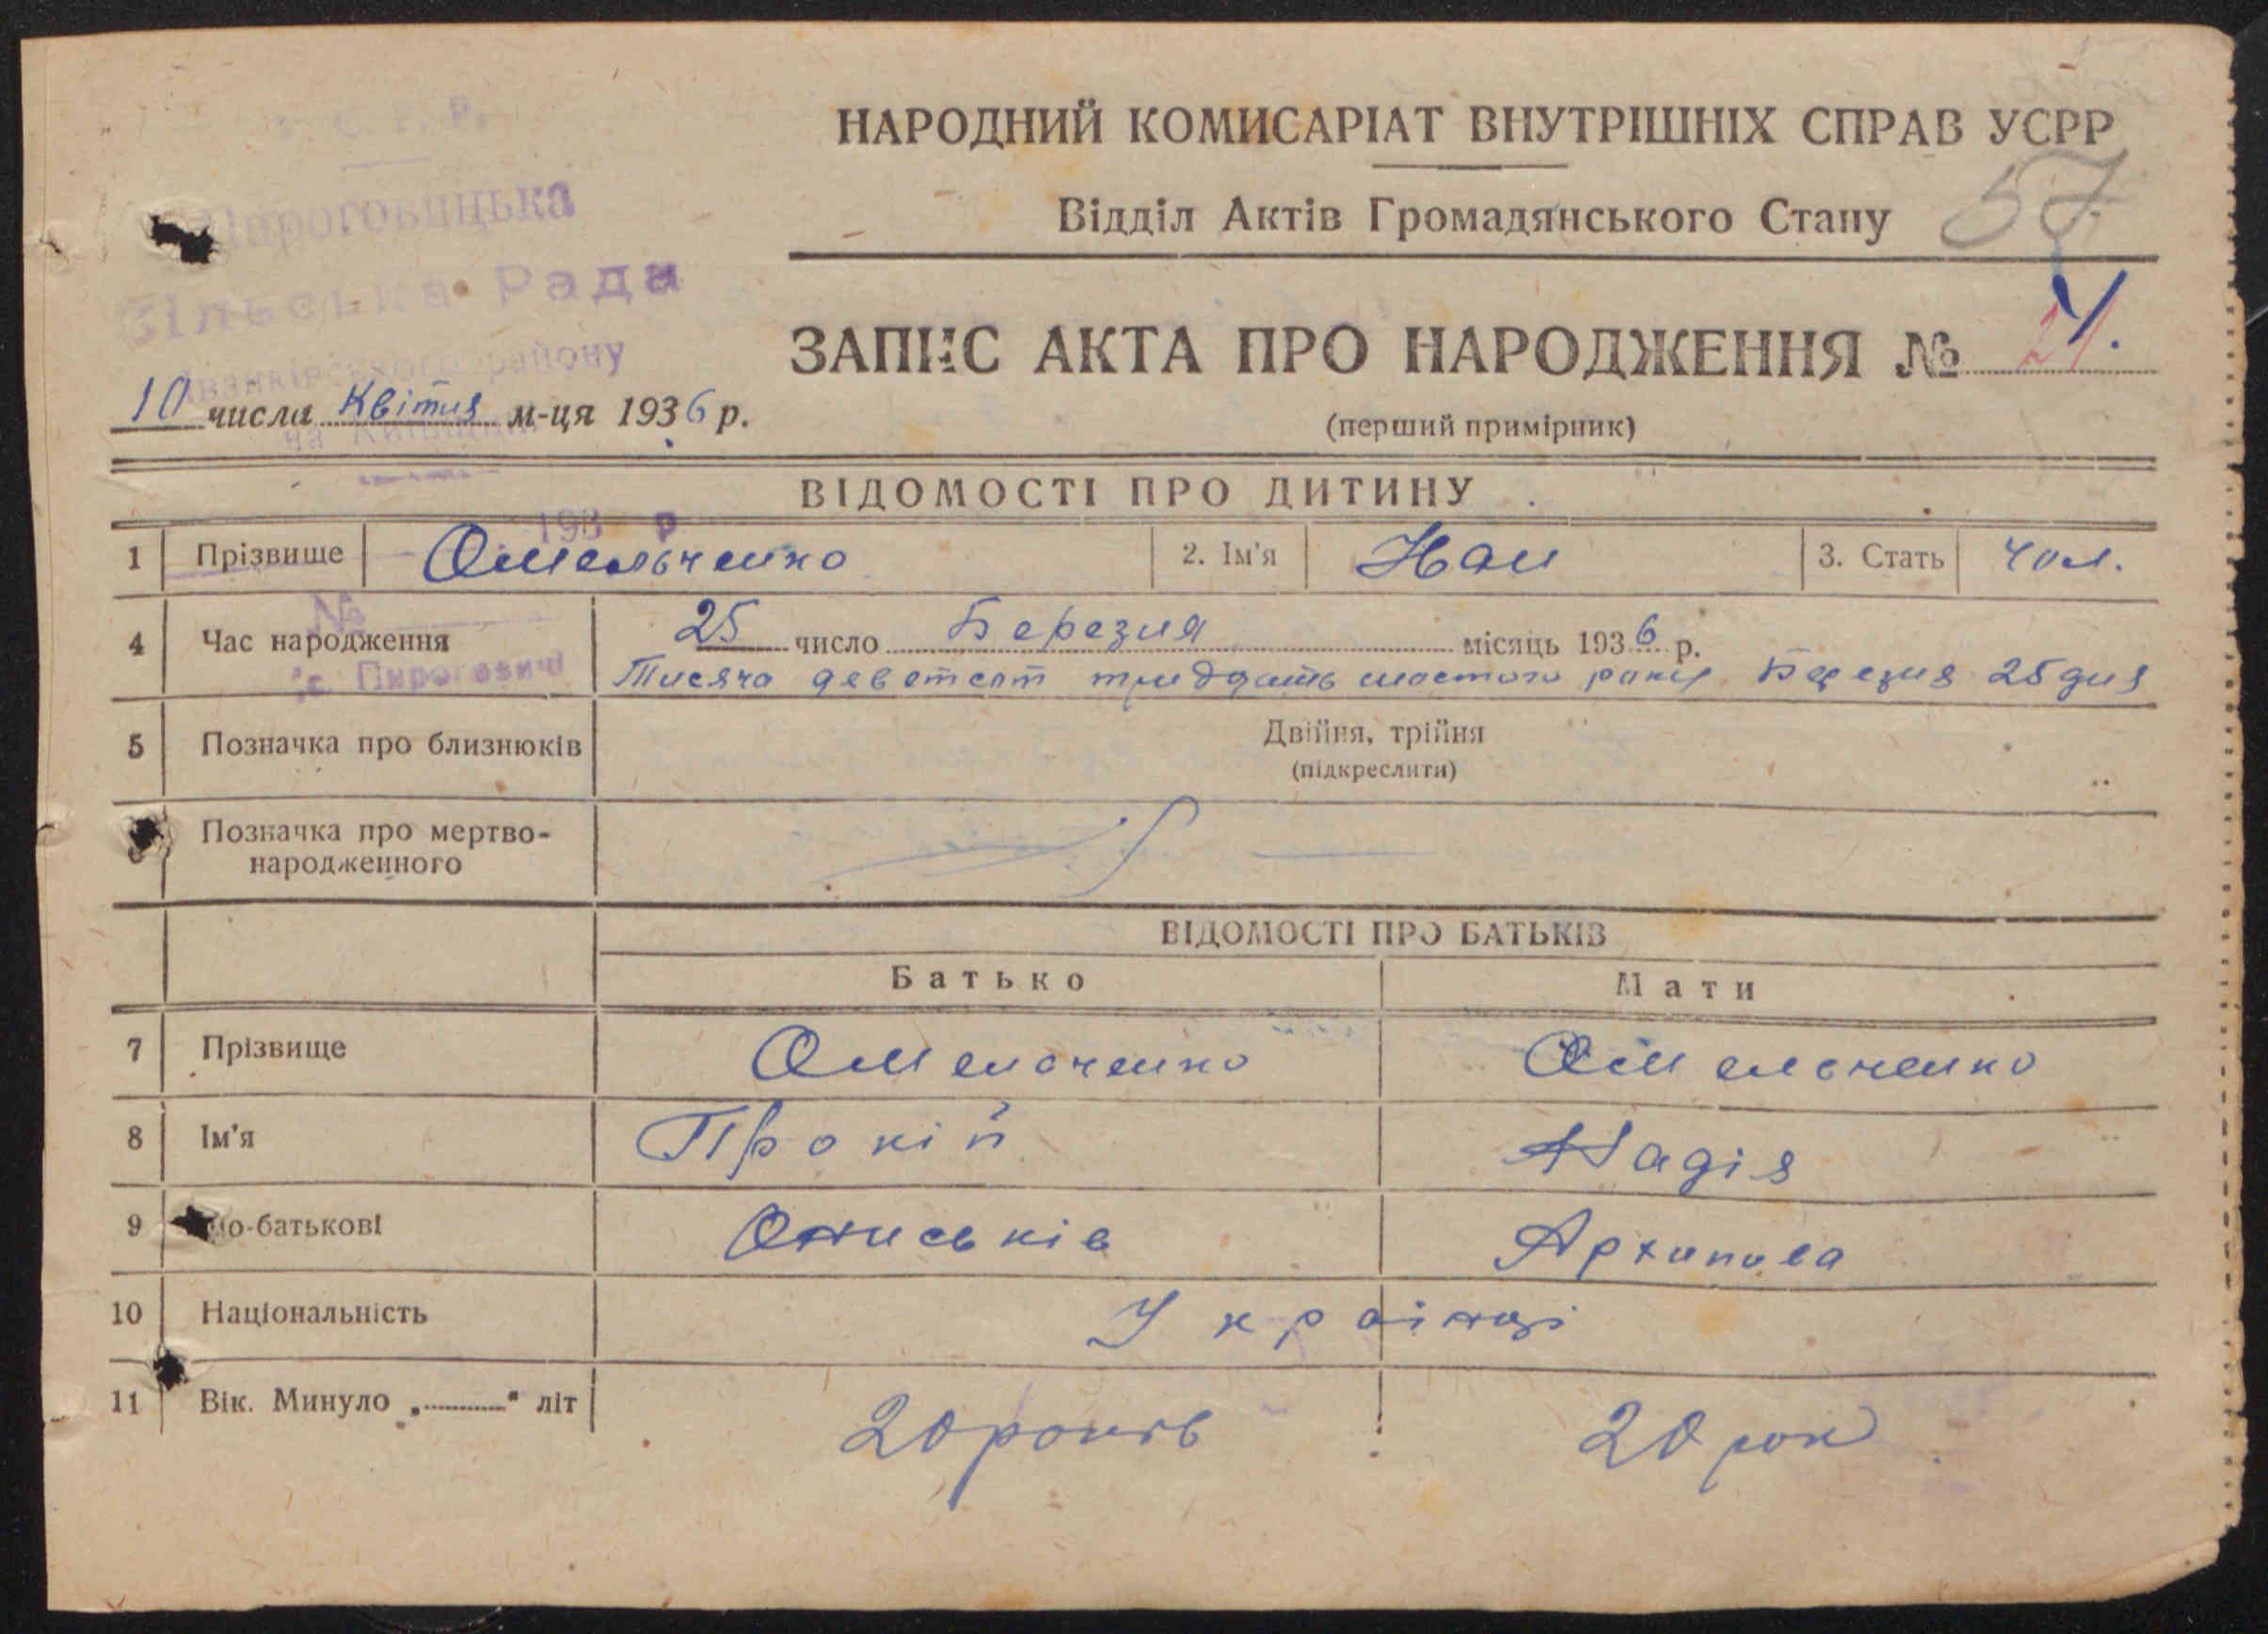 Пироговицька
Сільська Рада
Іванківського району
НАРОДНИЙ КОМИСАРІАТ ВНУТРІШНІХ СПРАВ УСРР
Відділ Актів Громадянського Стану 57
ЗАПИС АКТА ПРО НАРОДЖЕННЯ №
10 числа Квітня м-ця 1936 р.
(перший примірник)
ВІДОМОСТІ ПРО ДИТИНУ
193 р
1 Прізвище Омельченко 2. Ім'я Нан 3. Стать чол.
№
4 Час народження 25 число Березня місяць 1936 р.
с. Пироговичі
Тисяча девятсот тридцать шостого року Березня 25 дня
5 Позначка про близнюків Двійня, трійня
(підкреслити)
Позначка про мертво-
народженного
ВІДОМОСТІ ПРО БАТЬКІВ
Батько Мати
7 Прізвище Омельченко Омельченко
8 Ім'я Прокій Надія
9 по-батькові Ониськів Архипова
10 Національність Українці
11 Вік. Минуло „ “ літ 20 років 20 рок